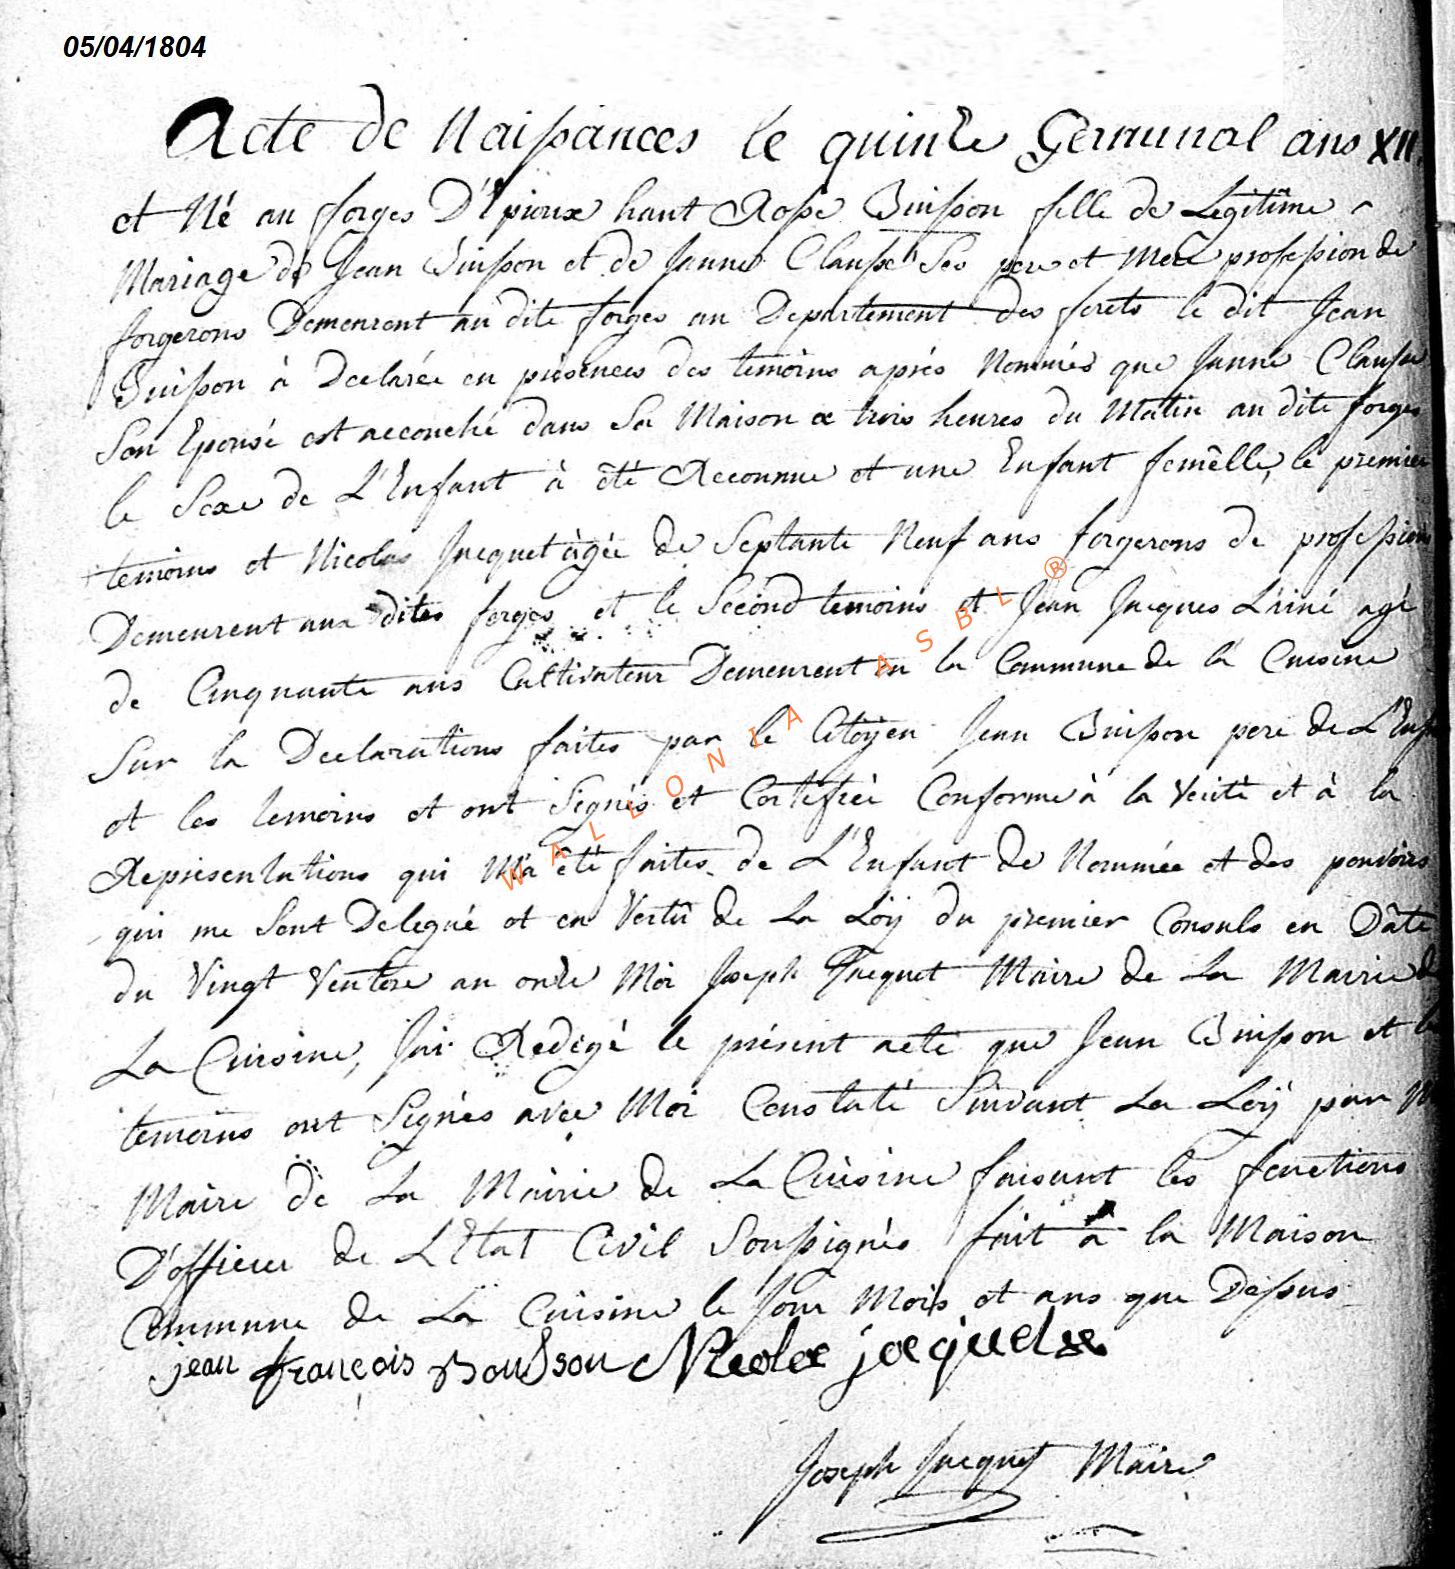 05/04/1804
Acte de Naissances le quinze Germinal ans XII
et Né au forges D'Epioux haut Rose Buisson fille de Legitime
Mariage de Jean Buisson et de Janne Clausse Ses pere et Mere profession de
forgerons Demeurent au dite forges au Departement des forets le dit Jean
Buisson à Declarée en présences des temoins aprés Nommés que Janne Clausse
Son Epousé est accouché dans Sa Maison a trois heures du Matin au dite forges
le Sexe de L'Enfant à été Reconnue et une Enfant femêlle, le premier
temoins et Nicolas Jacquet àgée de Septante Neuf ans forgerons de profession
Demeurent aux dites forges et le Sécond temoins et Jean Jacques agé
de Cinquante ans Cultivateur Demeurent en la Commune de la Cuisine
Sur la Declarations faites par le Citoyen Jean Buisson pere de L'Enf
et les temoins et ont Signés et Certifiéé Conforme à la Verité et à la
Representations qui M'a été faites de L'Enfant de Nommée et des pouvoirs
qui me Sont Delegué et en Vertû de La Loÿ du premier Consuls en Dâte
du Vingt Ventose an onze Moi Joseph Jacquet Maire de La Mairie de
La Cuisine, J'ai Redigé le présent acte que Jean Buisson et le
temoins ont Signés avec Moi Constaté Suivant La Loÿ par M
Maire de La Mairie de La Cuisine faisant les fonctions
D'officier de L'Etat Civil Soussignés fait à la Maison
Commune de La Cuisine le Jour Mois et ans que Dessus
jean françois Bouisson Nicolas jacquet
Joseph Jacquet Maire
WALLONIA ASBL ®